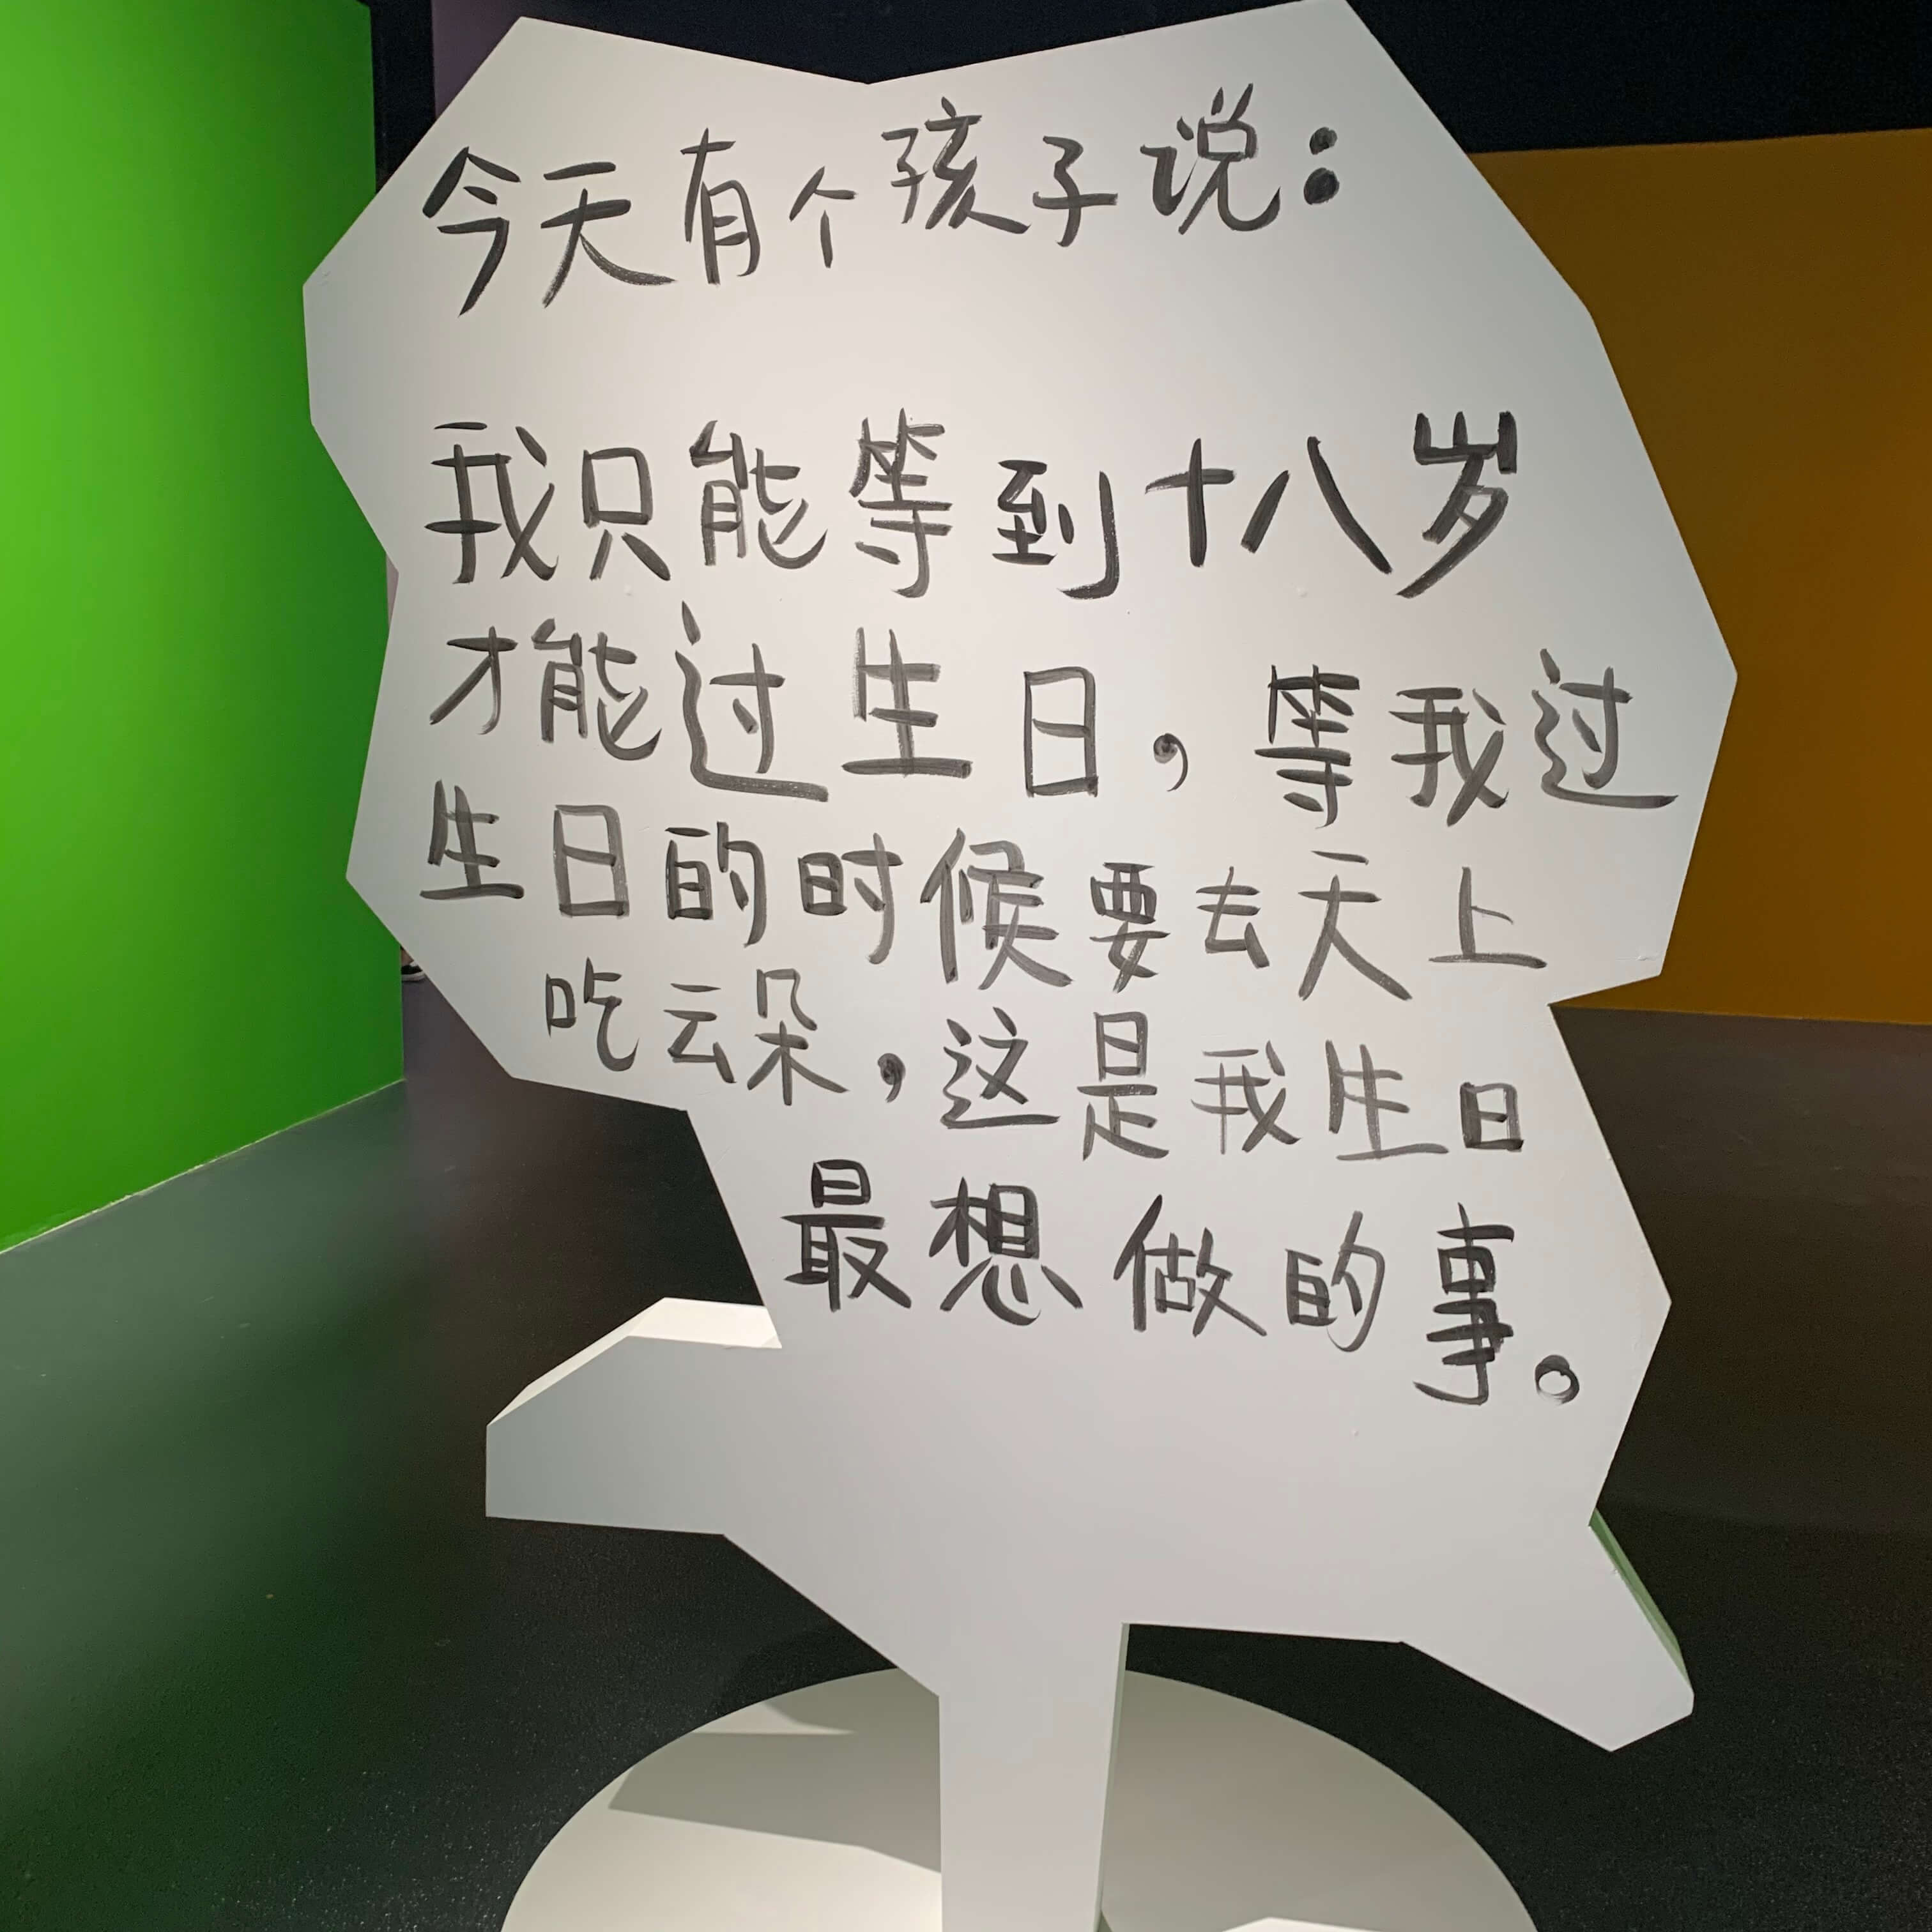 今天有个孩子说：
我只能等到十八岁
才能过生日，等我过
生日的时候要去天上
吃云朵，这是我生日
最想做的事。